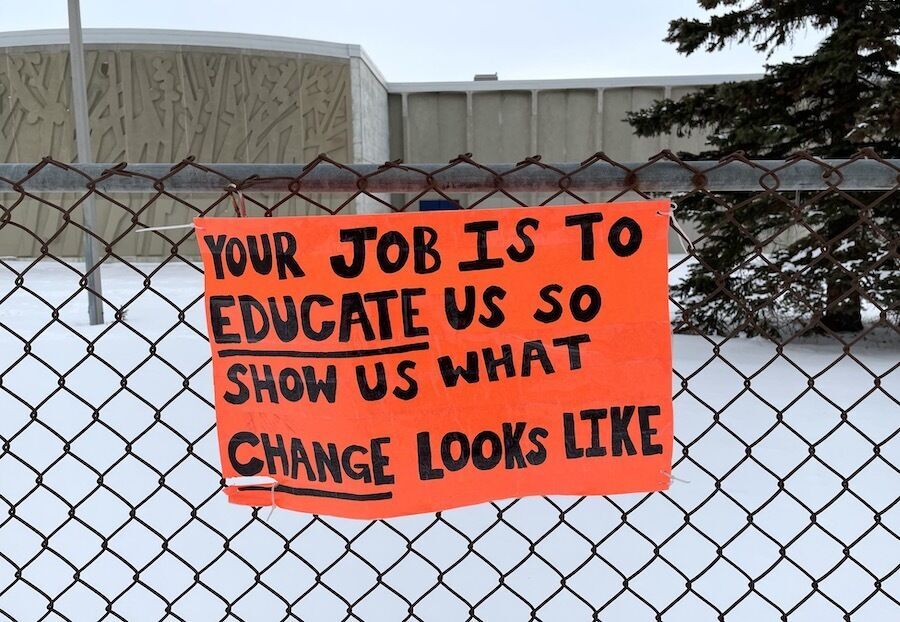 YOUR JOB IS TO
EDUCATE US SO
SHOW US WHAT
CHANGE LOOKS LIKE